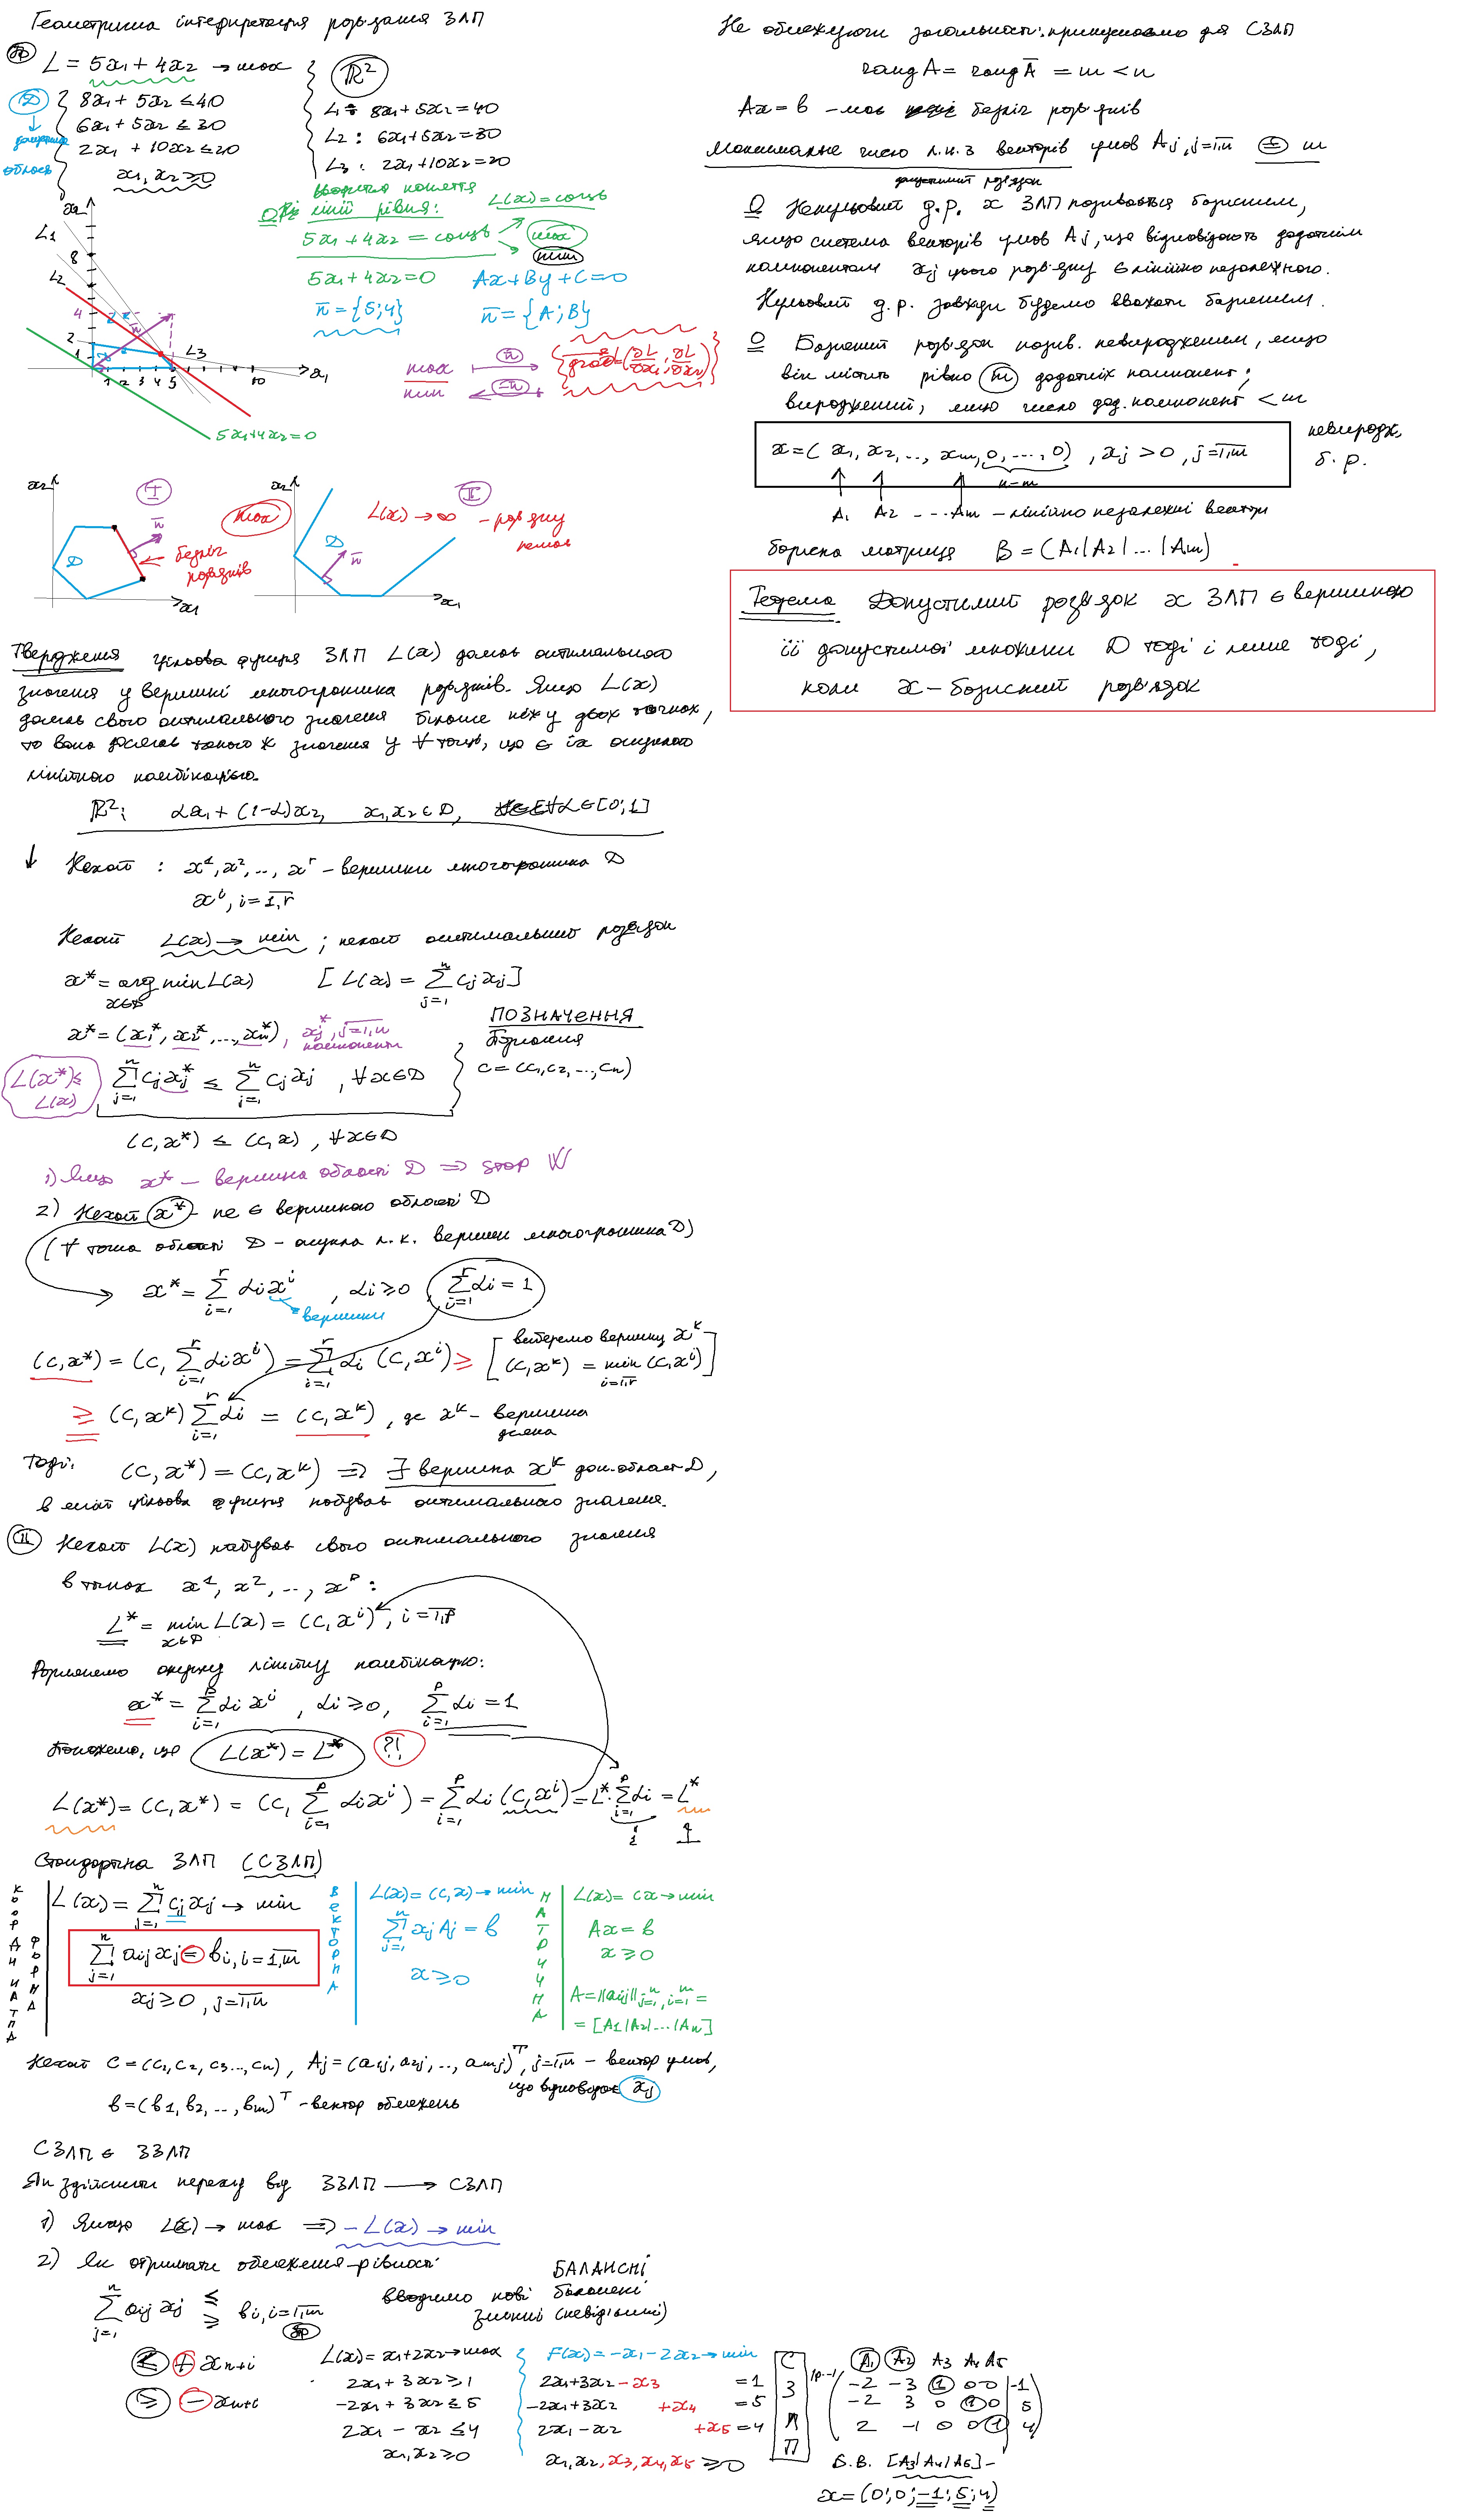 Геометрична інтерпретація розв'язання ЗЛП
L = 5x₁ + 4x₂ → max
ℝ²
D
допустима
область
8x₁ + 5x₂ ≤ 40
6x₁ + 5x₂ ≤ 30
2x₁ + 10x₂ ≤ 20
x₁, x₂ ≥ 0
L₁: 8x₁ + 5x₂ = 40
L₂: 6x₁ + 5x₂ = 30
L₃: 2x₁ + 10x₂ = 20
Вводиться поняття
лінії рівня: L(x) = const
5x₁ + 4x₂ = const
max
min
5x₁ + 4x₂ = 0
Ax + By + C = 0
n̄ = {5; 4}
n̄ = {A; B}
max n̄
min -n̄
grad L = (∂L/∂x₁, ∂L/∂x₂)
x₂
L₁
8
L₂
4
2
1
L₃
1 2 3 4 5 10 x₁
5x₁ + 4x₂ = 0
x₂ I n̄ D x₁
max
безліч
розв'язків
x₂ II D n̄ x₁
L(x) → ∞ - розв'язку
немає
Твердження Цільова функція ЗЛП L(x) досягає оптимального
значення у вершині многогранника розв'язків. Якщо L(x)
досягає свого оптимального значення більше ніж у двох точках,
то вона досягає такого ж значення у ∀ точці, що є їх опуклою
лінійною комбінацією.
ℝ²: αx₁ + (1-α)x₂, x₁, x₂ ∈ D, ∀α ∈ [0; 1]
↓ Нехай: x¹, x², .., xʳ - вершини многогранника D
xⁱ, i = 1,r
Нехай L(x) → min; нехай оптимальний розв'язок
x* = arg min L(x) [L(x) = ∑ cⱼxⱼ]
x∈D j=1 n
x* = (x₁*, x₂*, ..., xₙ*), xⱼ*, j = 1,n
компоненти
ПОЗНАЧЕННЯ
c = (c₁, c₂, ..., cₙ)
L(x*) ≤
L(x)
∑ cⱼxⱼ* ≤ ∑ cⱼxⱼ, ∀x∈D
(c, x*) ≤ (c, x), ∀x∈D
1) Якщо x* - вершина області D ⇒ STOP
2) Нехай x* не є вершиною області D
(∀ точка області D - опукла л.к. вершин многогранника D)
x* = ∑ αᵢxⁱ, αᵢ ≥ 0, ∑ αᵢ = 1
вершини
(c, x*) = (c, ∑ αᵢxⁱ) = ∑ αᵢ (c, xⁱ) ≥ [виберемо вершину xᵏ
(c, xᵏ) = min (c, xⁱ)]
i=1,r
≥ (c, xᵏ) ∑ αᵢ = (c, xᵏ), де xᵏ - вершина
деяка
Тоді: (c, x*) = (c, xᵏ) ⇒ ∃ вершина xᵏ доп. області D,
в якій цільова функція набуває оптимального значення.
II Нехай L(x) набуває свого оптимального значення
в точках x¹, x², .., xᵖ:
L* = min L(x) = (c, xⁱ), i = 1,p
x∈D
Розглянемо опуклу лінійну комбінацію:
x* = ∑ αᵢxⁱ, αᵢ ≥ 0, ∑ αᵢ = 1
Покажемо, що L(x*) = L* ?!
L(x*) = (c, x*) = (c, ∑ αᵢxⁱ) = ∑ αᵢ (c, xⁱ) = L*·∑ αᵢ = L*
Стандартна ЗЛП (СЗЛП)
КООРДИНАТНА
ФОРМА
L(x) = ∑ cⱼxⱼ → min
∑ aᵢⱼxⱼ = bᵢ, i = 1,m
xⱼ ≥ 0, j = 1,n
ВЕКТОРНА
L(x) = (c, x) → min
∑ xⱼAⱼ = b
x ≥ 0
МАТРИЧНА
L(x) = cx → min
Ax = b
x ≥ 0
A = ||aᵢⱼ|| j=1 n, i=1 m =
= [A₁|A₂|...|Aₙ]
Нехай c = (c₁, c₂, c₃..., cₙ), Aⱼ = (a₁ⱼ, a₂ⱼ, .., aₘⱼ)ᵀ, j = 1,n - вектор умов,
що відповідає xⱼ
b = (b₁, b₂, .., bₘ)ᵀ - вектор обмежень
СЗЛП ∈ ЗЗЛП
Як здійснити перехід від ЗЗЛП → СЗЛП
1) Якщо L(x) → max ⇒ -L(x) → min
2) Як отримати обмеження-рівності
∑ aᵢⱼxⱼ ≤ ≥ bᵢ, i = 1,m
БАЛАНСНІ
вводимо нові балансні
змінні (невід'ємні)
≤ + xₙ₊ᵢ
≥ - xₙ₊ᵢ
Пр
L(x) = x₁ + 2x₂ → max
2x₁ + 3x₂ ≥ 1
-2x₁ + 3x₂ ≤ 5
2x₁ - x₂ ≤ 4
x₁, x₂ ≥ 0
F(x) = -x₁ - 2x₂ → min
2x₁ + 3x₂ - x₃ = 1
-2x₁ + 3x₂ + x₄ = 5
2x₁ - x₂ + x₅ = 4
x₁, x₂, x₃, x₄, x₅ ≥ 0
СЗЛП
|·(-1)
A₁ A₂ A₃ A₄ A₅
-2 -3 1 0 0 | -1
-2 3 0 1 0 | 5
2 -1 0 0 1 | 4
Б.В. [A₃|A₄|A₅] -
x = (0; 0; -1; 5; 4)
Не обмежуючи загальності, припускаємо для СЗЛП
rang A = rang Ā = m < n
Ax = b - має безліч розв'язків
Максимальне число л.н.з векторів умов Aⱼ, j = 1,n = m
допустимий розв'язок
О Ненульовий д.р. x ЗЛП називається базисним,
якщо система векторів умов Aⱼ, що відповідають додатнім
компонентам xⱼ цього розв'язку є лінійно незалежною.
Нульовий д.р. завжди будемо вважати базисним.
О Базисний розв'язок назив. невиродженим, якщо
він містить рівно m додатніх компонент;
вироджений, якщо число дод. компонент < m
x = (x₁, x₂, .., xₘ, 0, ..., 0), xⱼ > 0, j = 1,m
n-m
невиродж.
б.р.
A₁ A₂ ... Aₘ - лінійно незалежні вектори
базисна матриця B = (A₁|A₂|...|Aₘ)
Теорема Допустимий розв'язок x ЗЛП є вершиною
її допустимої множини D тоді і лише тоді,
коли x - базисний розв'язок